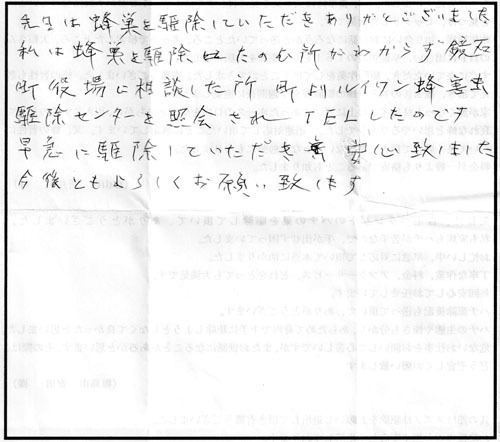 先日は蜂巣を駆除していただきありがとうございました
私は蜂巣を駆除したのむ所がわからず鏡石
町役場に相談した所町よりルイワン蜂害虫
駆除センターを照会され TELしたのです
早急に駆除していただき安心致しました
今後ともよろしくお願い致します